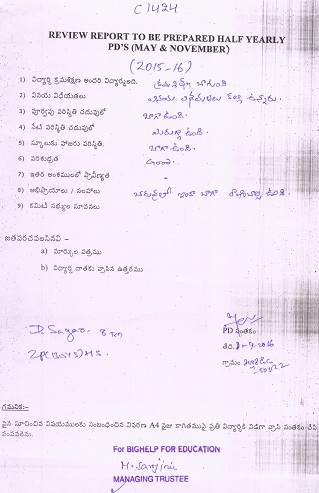 C1424
REVIEW REPORT TO BE PREPARED HALF YEARLY
PD'S (MAY & NOVEMBER)
(2015-16)
1) విద్యార్థి క్రమశిక్షణ అందరి విద్యార్థులది. క్రమశిక్షణ బాగుంది
2) వినయ విధేయతలు వినయ విధేయతలు కల్గి ఉన్నారు.
3) పూర్వపు పరిస్థితి చదువులో బాగా ఉంది.
4) నేటి పరిస్థితి చదువులో మెరుగ్గా ఉంది.
5) స్కూలుకు హాజరు పరిస్థితి. బాగా ఉంది.
6) పరిశుభ్రత ఉంది.
7) ఇతర అంశములలో ప్రావీణ్యత -
8) అభిప్రాయాలు / సలహాలు ఇంకా బాగా ఉంది.
9) కమిటీ సభ్యుల సూచనలు
జతపరచవలసినవి :-
a) మార్కుల పత్రము
b) విద్యార్థి దాతకు వ్రాసిన ఉత్తరము
D. Sagar. 8th
ZP(BOYS)HS.
PD సంతకం
తేది: -9-2016
గ్రామం:
గమనిక:-
పైన సూచించిన విషయములకు సంబంధించిన వివరణ A4 సైజు కాగితముపై ప్రతి విద్యార్థికి విడిగా వ్రాసి సంతకం చేసి
పంపవలెను.
For BIGHELP FOR EDUCATION
M. Sarojini
MANAGING TRUSTEE